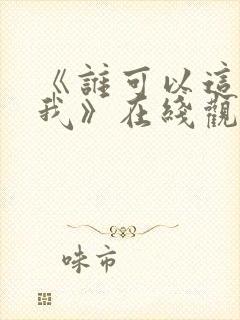 《誰可以這
我》在綫觀
咪市